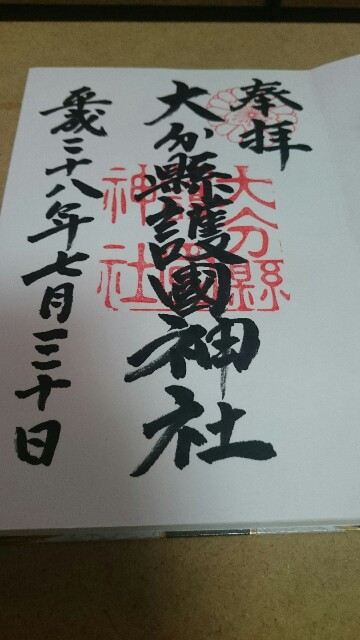 奉拝
大分縣護國神社
平成二十八年七月三十日
大分縣
護國
神社